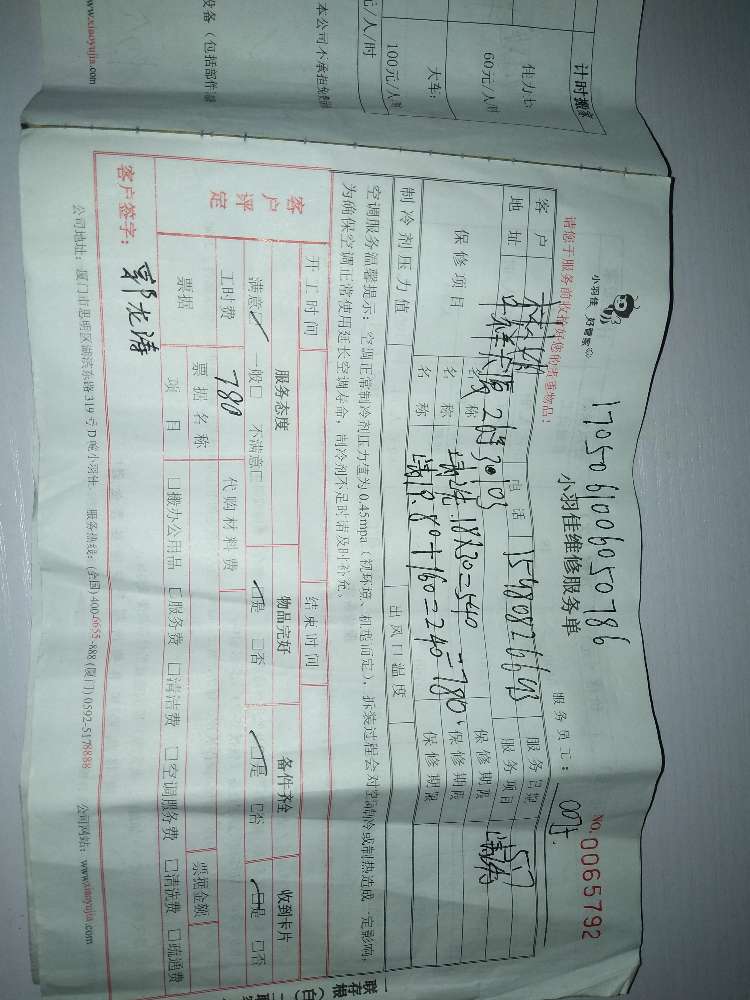 计时搬家
60元/人
大车:
100元/人
元/人/时
本公司不承担
设备(包括部件
www.xiaoyujia.com
17050610060050786
小羽佳 好管家
小羽佳维修服务单
No.0065792
请您于服务前收拾好您的贵重物品!
服务员工:
客户
电话
15980826693
服务员工
地址
服务项目
保修项目
名称
清洗.18X30=540
保修期限
名称
保修期限
80+160=240
=780
名称
保修期限
制冷剂压力值
出风口温度
空调服务温馨提示:空调正常制冷剂压力值为0.45mpa(视环境、机型而定),拆装过程会对空调制冷或制热造成一定影响,
为确保空调正常使用延长空调寿命,制冷剂不足时请及时补充。
开工时间
结束时间
客户评定
服务态度
物品完好
备件齐全
收到卡片
满意☑ 一般□ 不满意□
☑是 □否
☑是 □否
☑是 □否
工时费
780
代购材料费
票据
票据名称
票据金额
项目
□搬办公用品 □服务费 □清洁费 □空调服务费 □清洗费 □疏通费
客户签字:
郭龙涛
公司地址:厦门市思明区湖滨东路319号D座小羽佳 服务热线:(全国)400-6655-888 (厦门)0592-5178888 公司网站:www.xiaoyujia.com
一联存根(白)